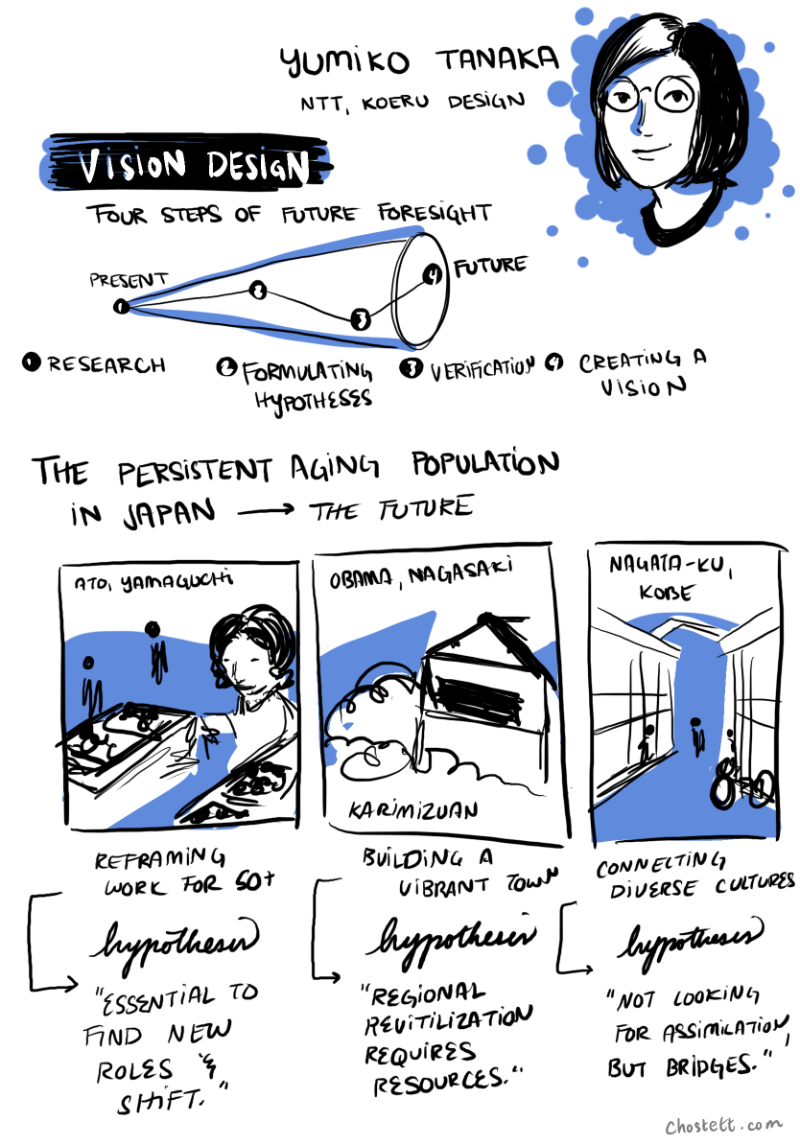 YUMIKO TANAKA
NTT, KOERU DESIGN
VISION DESIGN
FOUR STEPS OF FUTURE FORESIGHT
PRESENT
1
2
3
4
FUTURE
1 RESEARCH
2 FORMULATING
HYPOTHESES
3 VERIFICATION
4 CREATING A
VISION
THE PERSISTENT AGING POPULATION
IN JAPAN → THE FUTURE
ATO, YAMAGUCHI
REFRAMING
WORK FOR 50+
hypothesis
"ESSENTIAL TO
FIND NEW
ROLES &
SHIFT."
OBAMA, NAGASAKI
KARIMIZUAN
BUILDING A
VIBRANT TOWN
hypothesis
"REGIONAL
REVITILIZATION
REQUIRES
RESOURCES."
NAGATA-KU,
KOBE
CONNECTING
DIVERSE CULTURES
hypothesis
"NOT LOOKING
FOR ASSIMILATION,
BUT BRIDGES."
chostett.com